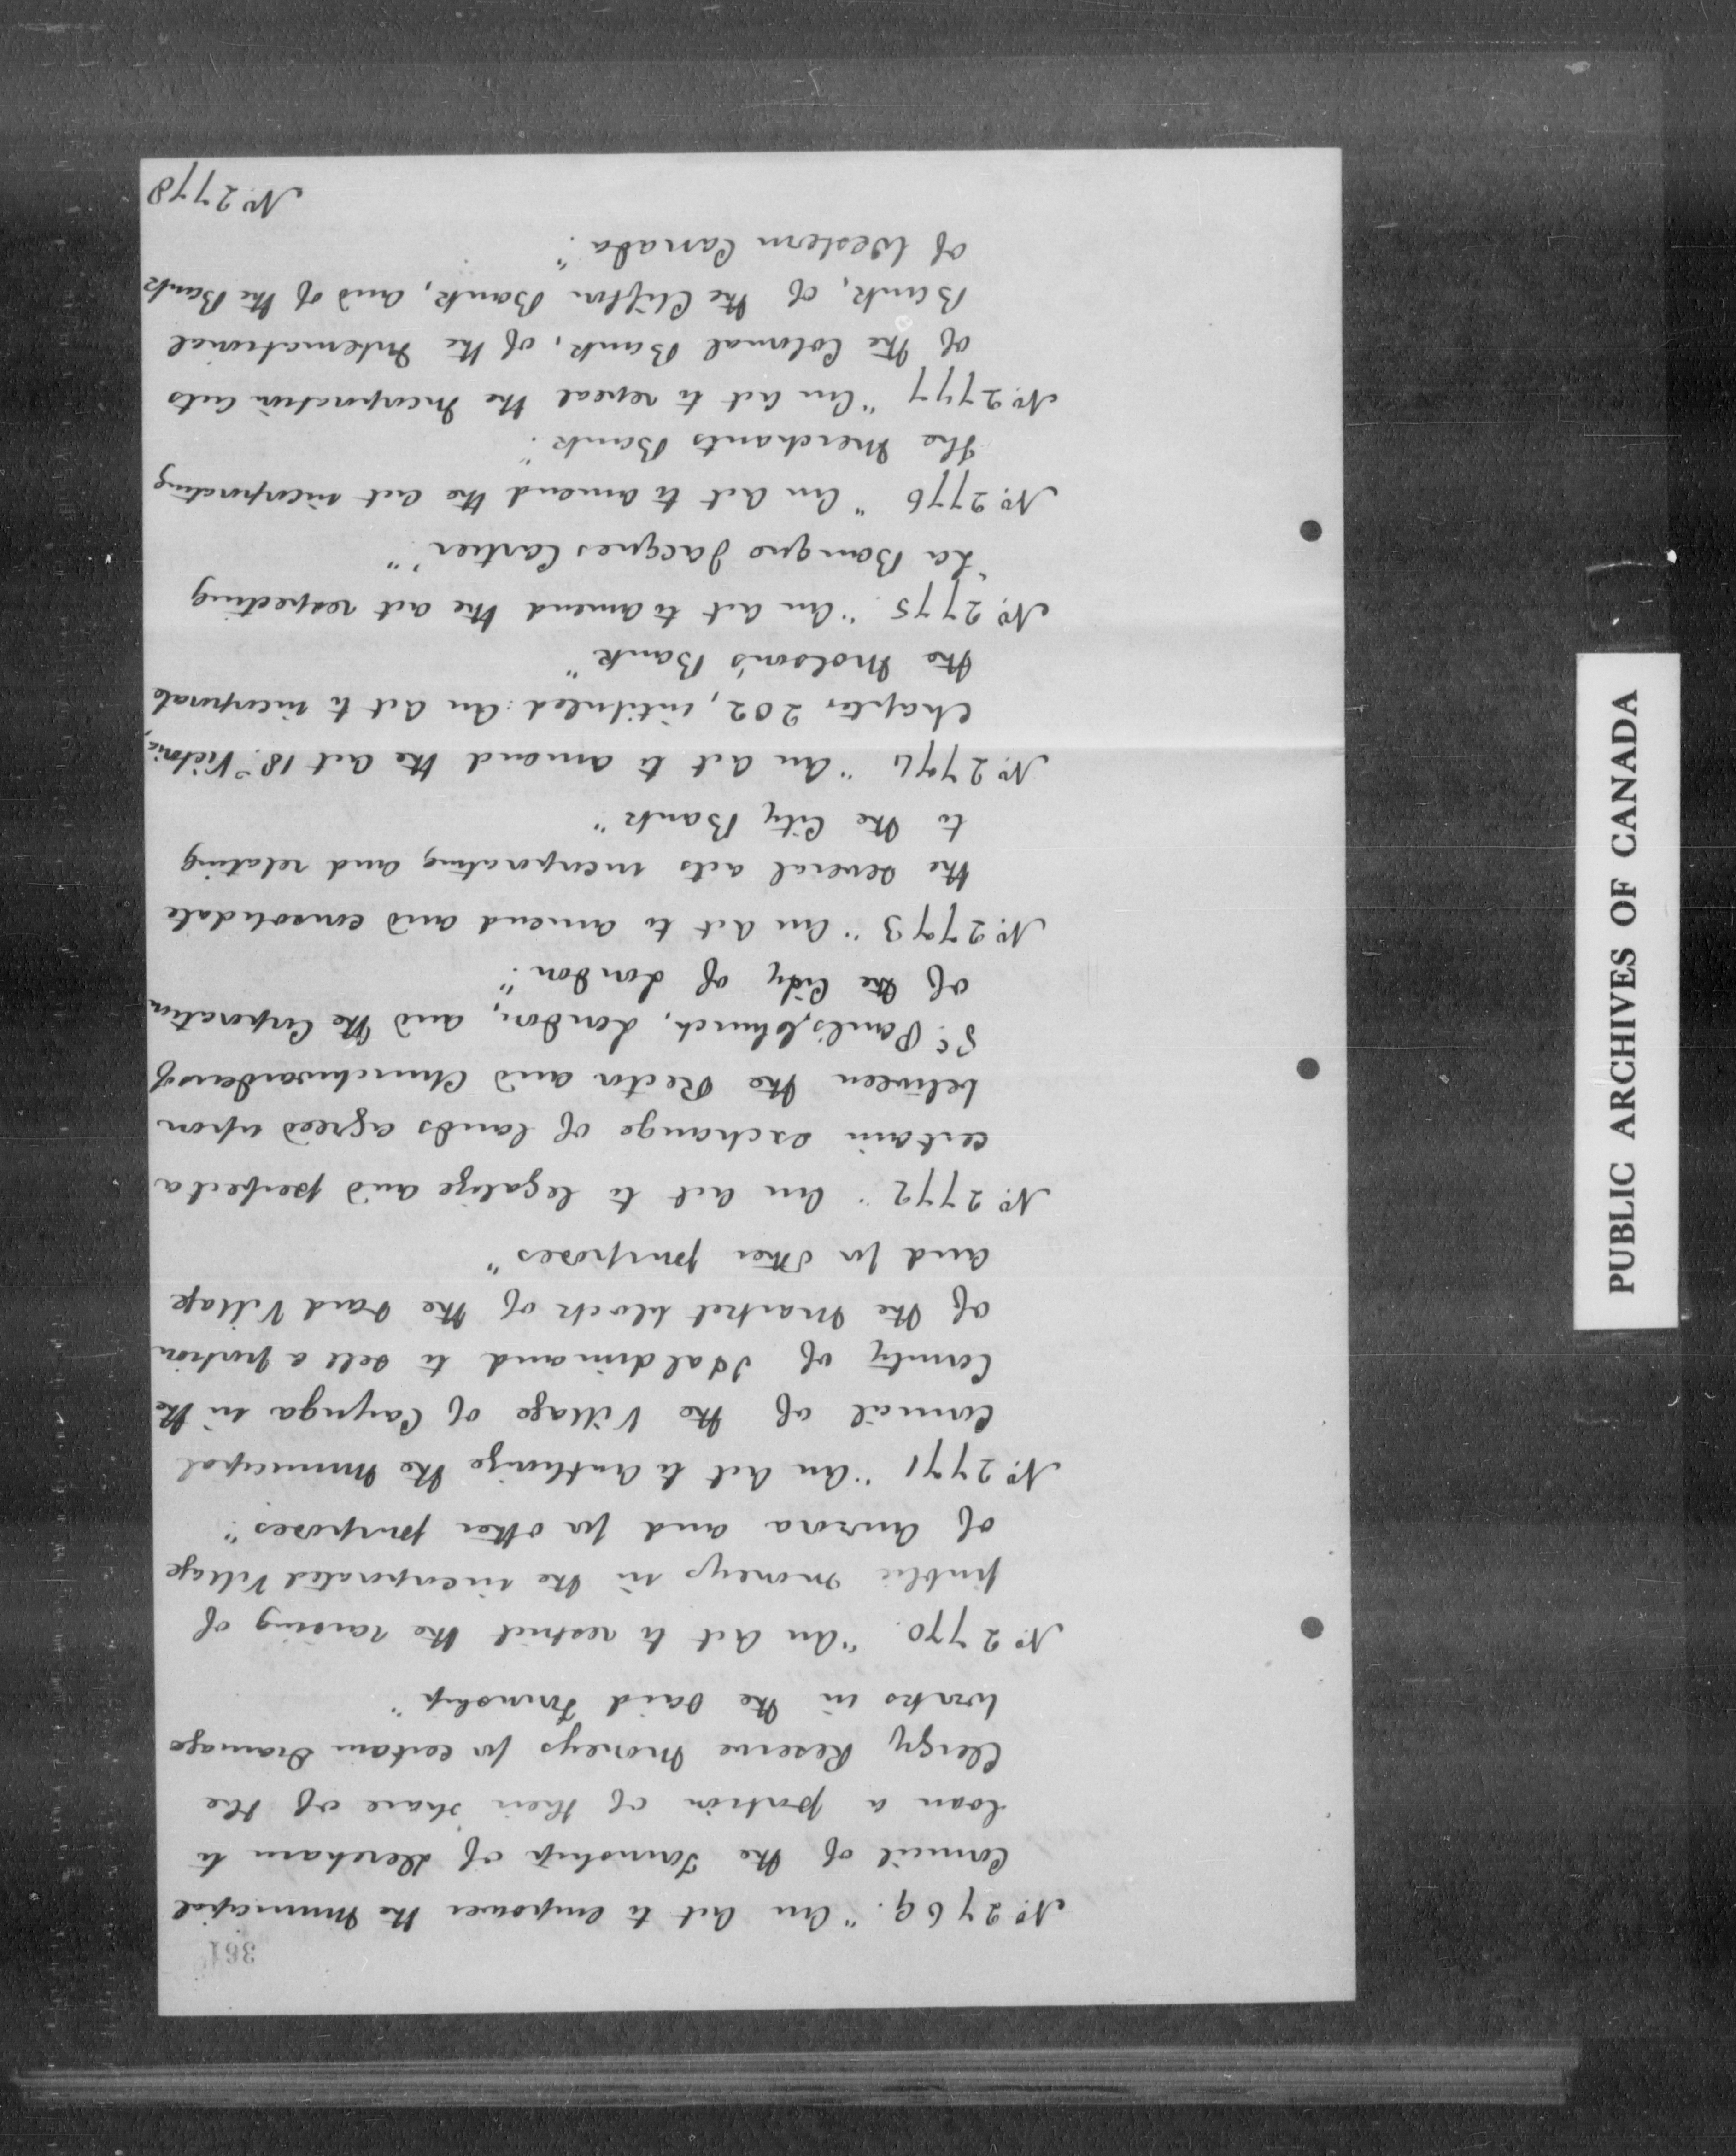 361
No. 2769. "An Act to empower the Municipal
Council of the Township of Dereham to
loan a portion of their share of the
Clergy Reserve Moneys for certain Drainage
works in the said Township"
No. 2770. "An Act to restrict the raising of
public moneys in the incorporated Village
of Aurora and for other purposes".
No. 2771 "An Act to authorize the Municipal
Council of the Village of Cayuga in the
County of Haldimand to sell a portion
of the Market block of the said Village
and for other purposes"
No. 2772 "An Act to legalize and perfect a
certain exchange of lands agreed upon
between the Rector and Churchwardens of
St. Paul's Church, London, and the Corporation
of the City of London".
No. 2773 "An Act to amend and consolidate
the several acts incorporating and relating
to the City Bank"
No. 2774 "An Act to amend the Act 18 Victoria,
Chapter 202, intituled: An Act to incorporate
the Molson's Bank"
No. 2775 "An Act to amend the act respecting
'La Banque Jacques Cartier'"
No. 2776 "An Act to amend the act incorporating
the Merchants Bank".
No. 2777 "An Act to repeal the Incorporation acts
of the Colonial Bank, of the International
Bank, of the Clifton Bank, and of the Bank
of Western Canada".
No. 2778
PUBLIC ARCHIVES OF CANADA